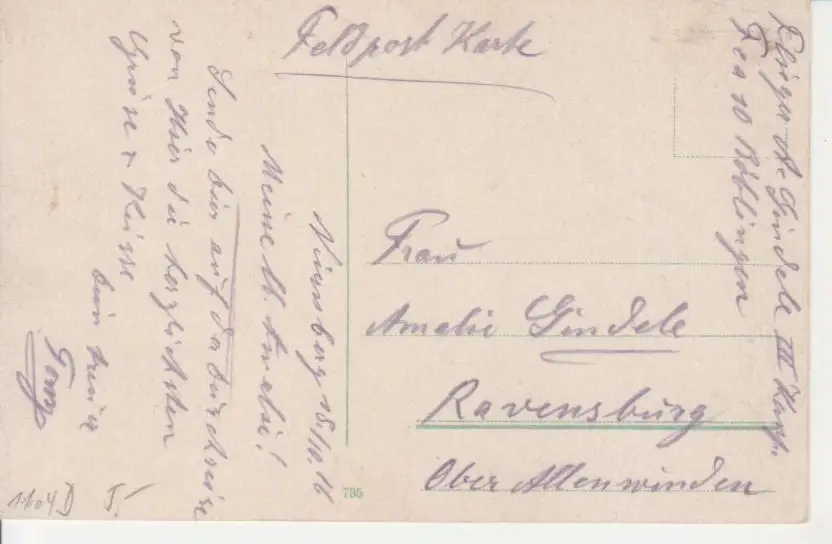 Feldpost Karte
Flieger G. Gindele III Komp.
Fea 10 Böblingen
Frau
Amelie Gindele
Ravensburg
Ober Allenwinden
Nürnberg 18/10.16
Meine lb. Amelie!
Sende hier auf der Durchreise
von hier die herzlichsten
Grüsse & Küsse
dein treuer
Georg
795
1104 D